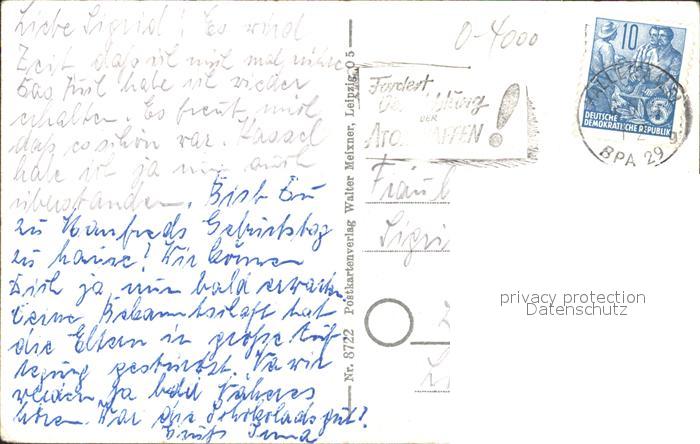 Liebe Sigrid! Es wird
Zeit daß ich mich mal rühre
Das habe ich wieder
erhalten. Es freut mich
daß es schön war. Kassel
habe ich ja nun auch
überstanden. Bist Du
zu Manfreds Geburtstag
zu hause! Wir können
Dich ja nun bald erwarten.
Deine Bekanntschaft hat
die Eltern in große Auf-
regung gestürzt. Na wir
werden ja bald Näheres
hören. War die Schokolade gut?
Gruß Irma
Nr. 8722 Postkartenverlag Walter Meixner, Leipzig O 5
0-4000
Fordert
DER
ATOMWAFFEN!
10
5
DEUTSCHE
DEMOKRATISCHE REPUBLIK
BPA 29
Sigri
privacy protection
Datenschutz